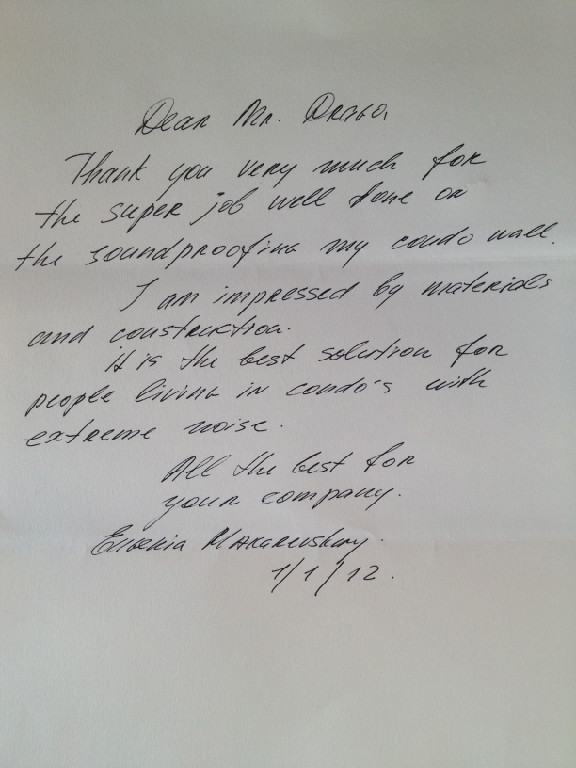 Dear Mr. Drago,
Thank you very much for
the super job well done on
the soundproofing my condo wall.
I am impressed by materials
and construction.
It is the best solution for
people living in condo's with
extreme noise.
All the best for
your company.
Eugenia
1/1/12.